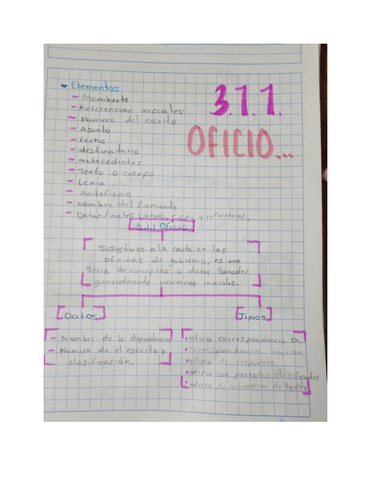 Elementos
- Membrete
- Referencias iniciales
- Numero del escrito
- Asunto
- Fecha
- destinatario
- antecedentes
- Texto o cuerpo
- Lema
- Antefirma
- nombre del firmante
- Datos finales
3.1.1.
OFICIO...
3.1.1 Oficio
Sustituye a la carta en las
oficinas de gobierno, es una
serie de conceptos o datos llamados
generalmente iniciales.
Datos
- Nombre de la dependencia
- Numero de el escrito y
clasificación.
Tipos
• oficio correspondencia
• oficio de respuesta
• oficio con
• oficio de